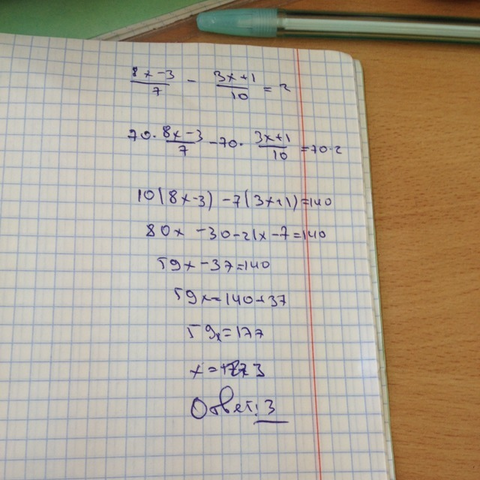 (8x-3)/7 - (3x+1)/10 = 2
70·(8x-3)/7 - 70·(3x+1)/10 = 70·2
10(8x-3) -7(3x+1)=140
80x -30-21x-7=140
59x-37=140
59x=140+37
59x=177
x=3
Ответ: 3